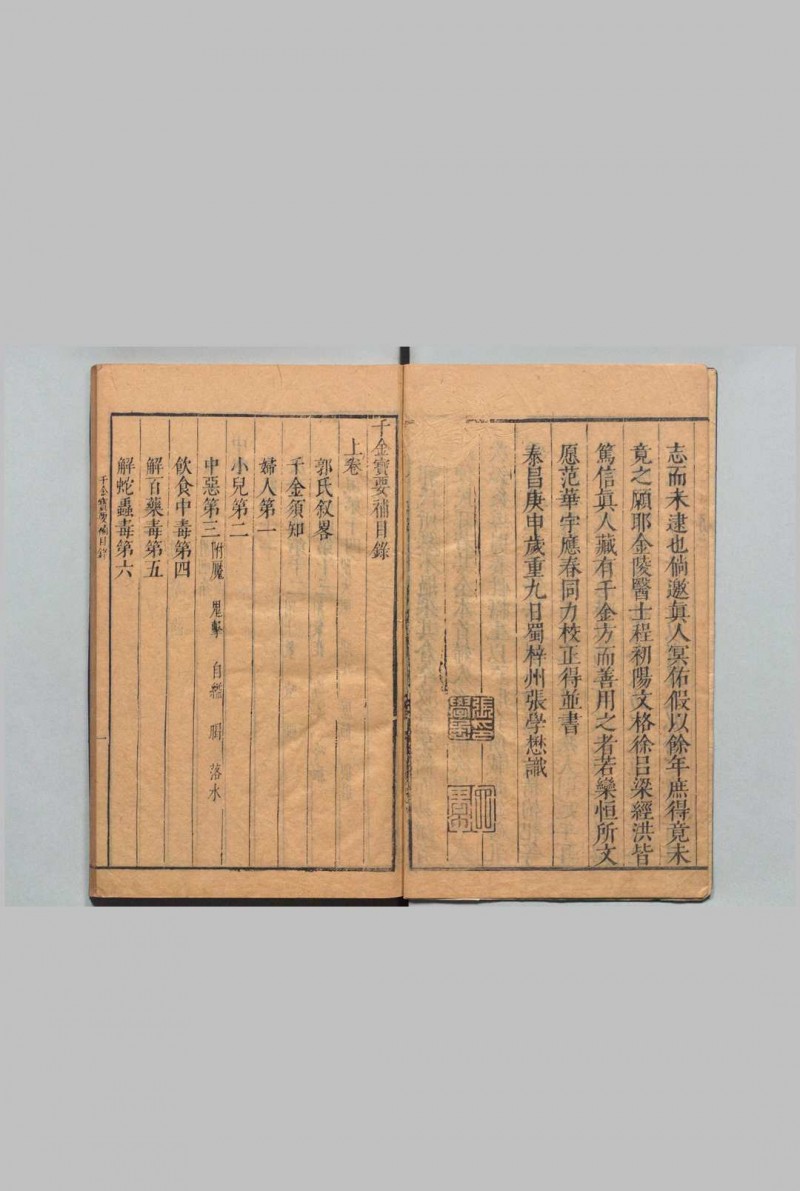 志而未逮也倘邀眞人冥佑假以餘年庶得竟未
竟之願耶金陵醫士程初陽文格徐呂梁經洪皆
篤信眞人藏有千金方而善用之者若欒恒所文
愿范華宇應春同力校正得並書
泰昌庚申歲重九日蜀梓州張學懋識
千金寶要補目錄
上卷
郭氏叙畧
千金須知
婦人第一
小兒第二
中惡第三 附魘 鬼擊 自縊 暍 落水
飲食中毒第四
解百藥毒第五
解蛇蟲毒第六
千金寶要補目錄
一